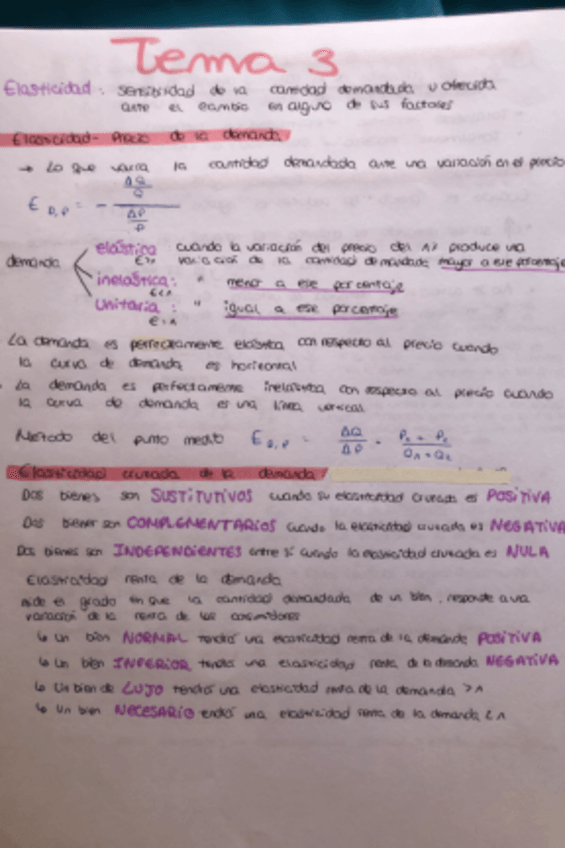 Tema 3
Elasticidad: sensibilidad de la cantidad demandada u ofrecida
ante el cambio en alguno de sus factores
Elasticidad-Precio de la demanda
→ Lo que varía la cantidad demandada ante una variación en el precio
E D,P = - (ΔQ/Q) / (ΔP/P)
demanda
elástica E>1 cuando la variación del precio del 1% produce una variación de la cantidad demandada mayor a ese porcentaje
inelástica: E<1 " menor a ese porcentaje
Unitaria: E=1 " igual a ese porcentaje
La demanda es perfectamente elástica con respecto al precio cuando
la curva de demanda es horizontal
La demanda es perfectamente inelástica con respecto al precio cuando
la curva de demanda es una línea vertical
Método del punto medio E D,P = ΔQ/ΔP · P1 + P2 / Q1 + Q2
Elasticidad cruzada de la demanda:
Dos bienes son SUSTITUTIVOS cuando su elasticidad cruzada es POSITIVA
Dos bienes son COMPLEMENTARIOS cuando la elasticidad cruzada es NEGATIVA
Dos bienes son INDEPENDIENTES entre sí cuando la elasticidad cruzada es NULA
Elasticidad renta de la demanda
mide el grado en que la cantidad demandada de un bien, responde a una
variación de la renta de los consumidores
↳ Un bien NORMAL tendrá una elasticidad renta de la demanda POSITIVA
↳ Un bien INFERIOR tendrá una elasticidad renta de la demanda NEGATIVA
↳ Un bien de LUJO tendrá una elasticidad renta de la demanda >1
↳ Un bien NECESARIO tendrá una elasticidad renta de la demanda <1